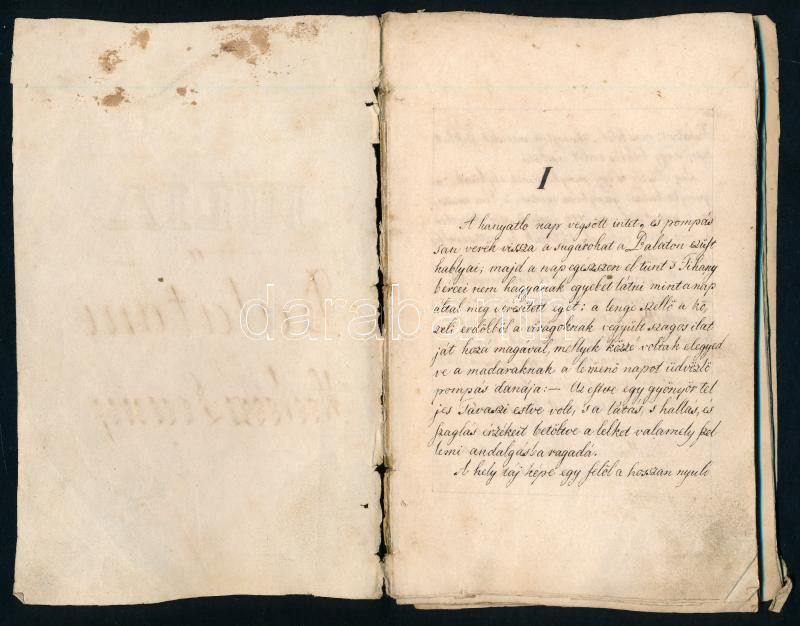 I
A hanyatlo nap végsőtt intet, és pompás
san verék vissza a sugárohat a Balaton ezüst
hablyai; majd a nap egeszszen el tünt s Tihany
bércei nem hagyának egyebet látni mint a nap
által meg veresitett eget; a lenge szellő a kö,
zeli erdőkből a virágoknak vegyült szagos illat
ját hoza magával, mellyek közzé voltak elegyed
ve a madaraknak a lemenő napot üdvezlő
pompás danája:— Az estve egy gyönyör tel
jes Tavaszi estve volt, s a látás, s hallás, és
szaglás érzékeit betöltve a lelket valamely
andalgásba ragadá.
A hely táj képe egy felől a hosszan nyuló
darabanth